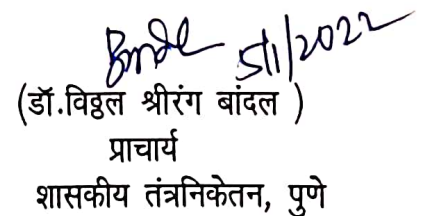 5/1/2022
(डॉ.विठ्ठल श्रीरंग बांदल )
प्राचार्य
शासकीय तंत्रनिकेतन, पुणे